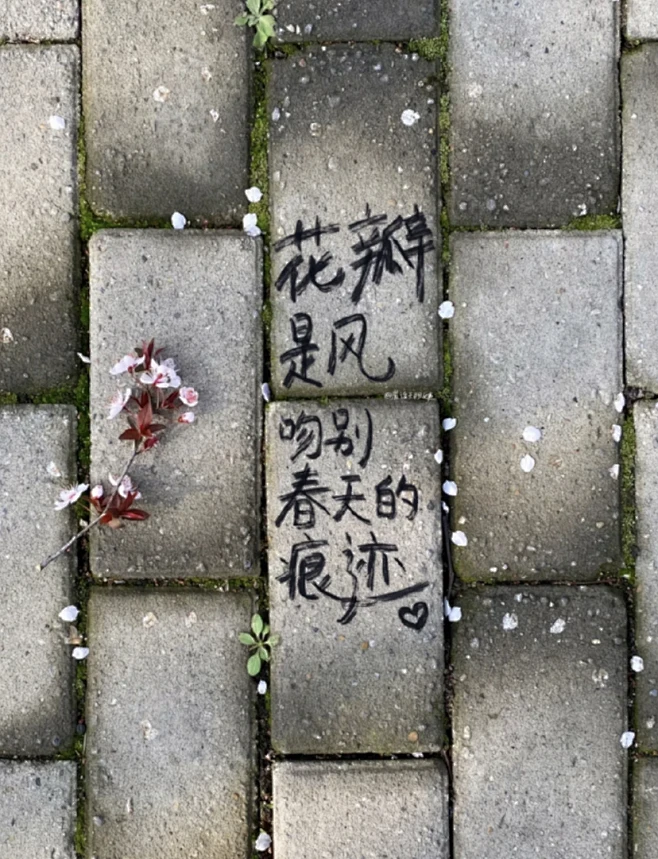 花瓣
是风
吻别
春天的
痕迹